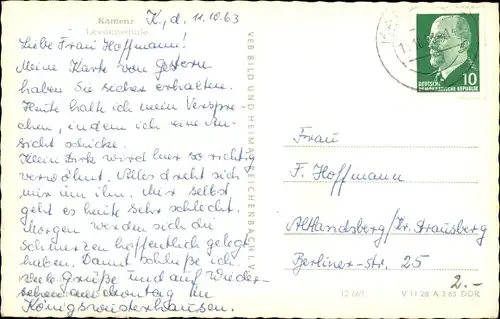 Kamenz
Lessingschule
K., d. 11.10.63
Liebe Frau Hoffmann!
Meine Karte von gestern
haben Sie sicher erhalten.
Heute halte ich mein Verspre-
chen, indem ich eine An-
sicht schicke.
Klein Dirk wird hier so richtig
verwöhnt. Alles dreht sich
nur um ihn. Mir selbst
geht es heute sehr schlecht.
Morgen werden sich die
Schmerzen hoffentlich gelegt
haben. Damit schließe ich
viele Grüße und auf Wieder-
sehen am Montag in
Königswusterhausen.
VEB BILD UND HEIMAT REICHENBACH I. V.
DEUTSCHE
DEMOKRATISCHE REPUBLIK
10
Frau
F. Hoffmann
Altlandsberg/Kr. Strausberg
Berliner-Str. 25
2.-
V 11 28 A 3 63 DDR